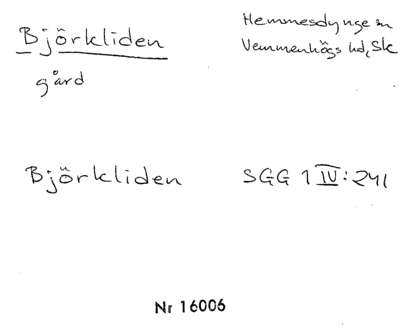 Björkliden
gård
Hemmesdynge sn
Vemmenhögs hd, Sk
Björkliden
SGG 1 IV:241
Nr 16006